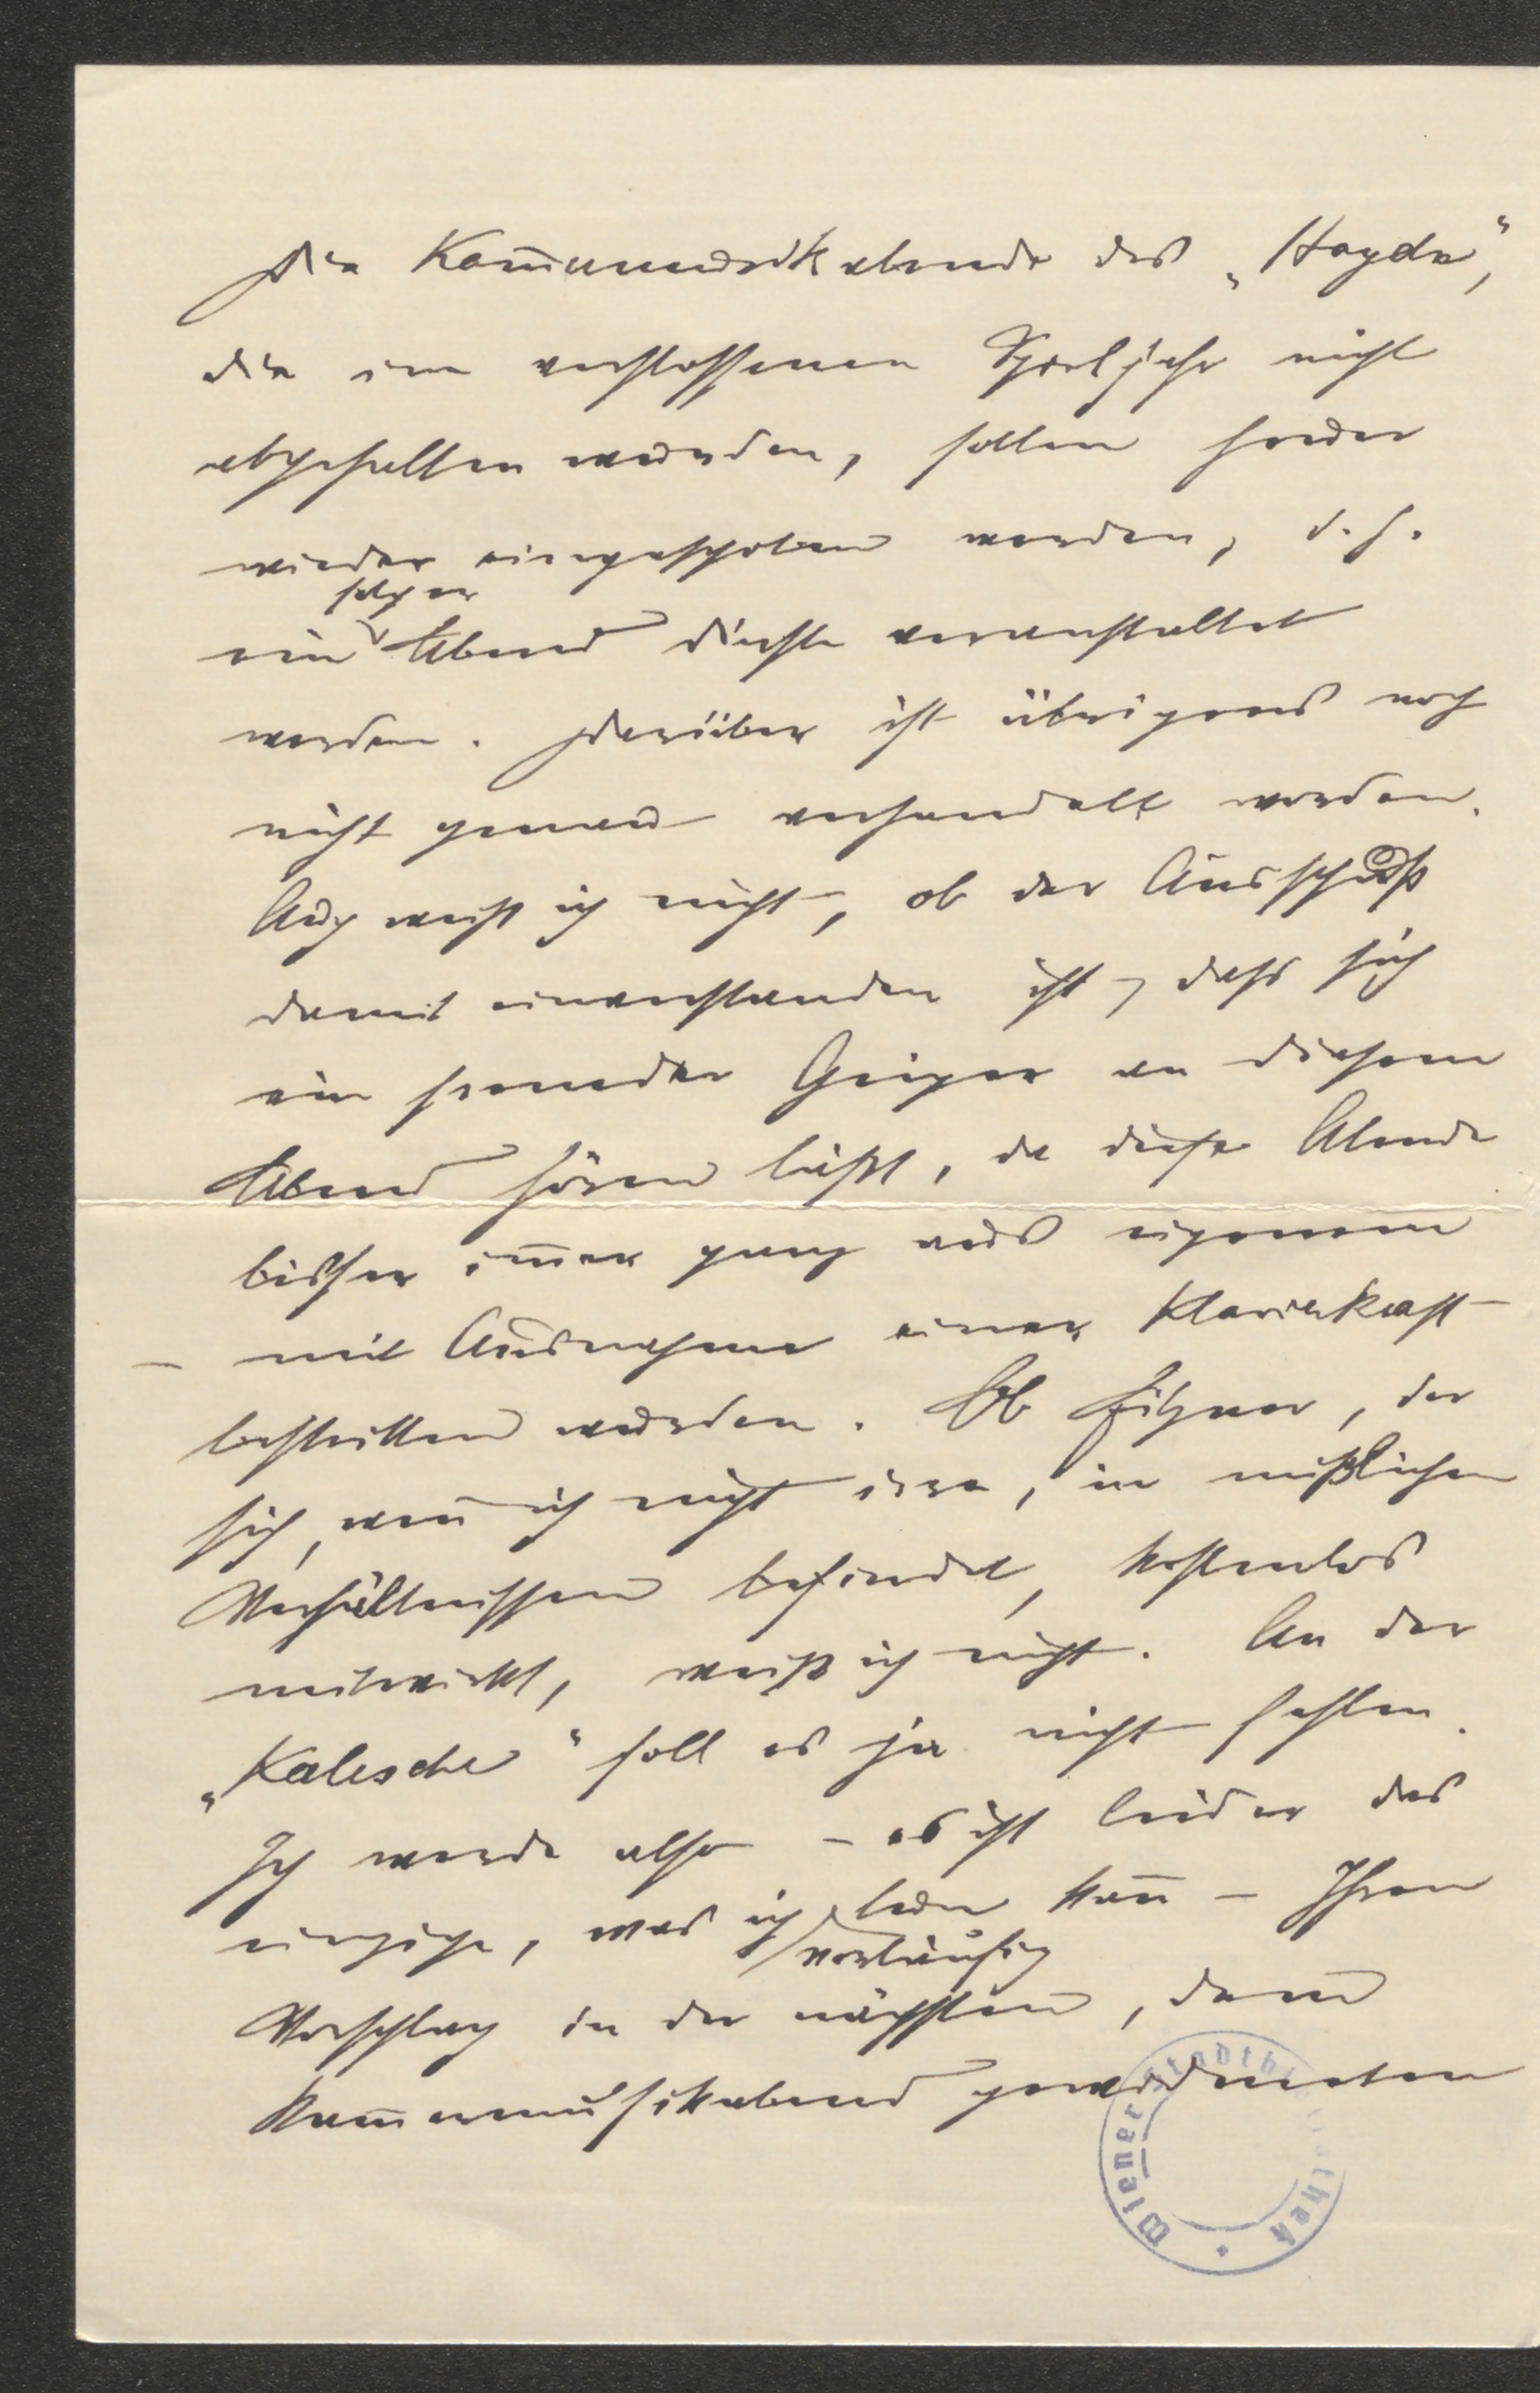 Die Kam̅ermusikabende des „Haydn“,
die im verflossenen Spieljahr nicht
abgehalten wurden, sollen heuer
wieder eingeschoben werden, d. h.
solcher
ein Abend dürfte veranstaltet
werden. Darüber ist übrigens noch
nicht genau verhandelt worden.
Auch weiß ich nicht, ob der Ausschuß
damit einverstanden ist, dass sich
ein fremder Geiger an diesem
Abend hören läßt, da diese Abende
bisher im̅er ganz aus eigenem
– mit Ausnahme einer Klavierkraft –
bestritten wurden. Ob Fitzner, der
sich, wen̅ ich nicht irre, in mißlichen
Verhältnissen befindet, kostenlos
mitwirkt, weiß ich nicht. An der
„Kalesche“ soll es ja nicht fehlen.
Ich werde also – es ist leider das
einzige, was ich kan̅ – Ihren
vorläufig
Vorschlag in der nächsten, dem
Kam̅ermusikabend gewidmeten
Wiener Stadtbibliothek